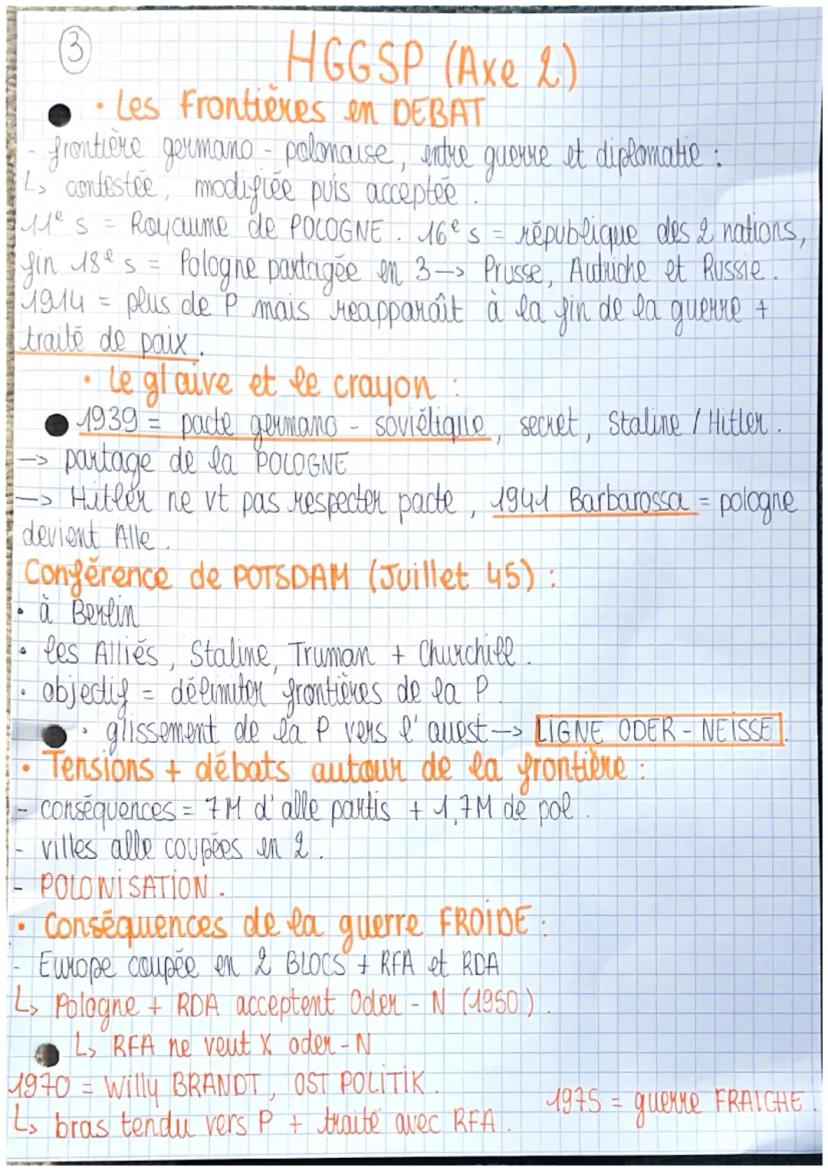 ③
HGGSP (Axe 2)
• Les Frontières en DEBAT
- frontière germano - polonaise, entre guerre et diplomatie :
↳ contestée, modifiée puis acceptée.
11e s = Royaume de POLOGNE. 16e s = république des 2 nations,
fin 18e s = Pologne partagée en 3 --> Prusse, Autriche et Russie.
1914 = plus de P mais reapparaît à la fin de la guerre +
traité de paix.
• Le glaive et le crayon :
1939 = pacte germano - soviétique, secret, Staline / Hitler.
--> partage de la POLOGNE
--> Hitler ne vt pas respecter pacte, 1941 Barbarossa = pologne
devient Alle.
Conférence de POTSDAM (Juillet 45) :
• à Berlin
• les Alliés, Staline, Truman + Churchill.
• objectif = délimiter frontières de la P.
• glissement de la P vers l'ouest --> LIGNE ODER - NEISSE.
• Tensions + débats autour de la frontière :
- conséquences = 7M d'alle partis + 1,7M de pol.
- villes alle coupées en 2.
- POLONISATION.
• Conséquences de la guerre FROIDE :
- Europe coupée en 2 BLOCS + RFA et RDA
↳ Pologne + RDA acceptent Oder - N (1950).
↳ RFA ne veut X oder - N
1970 = Willy BRANDT, OST POLITIK.
↳ bras tendu vers P + traité avec RFA.
1975 = guerre FRAICHE.